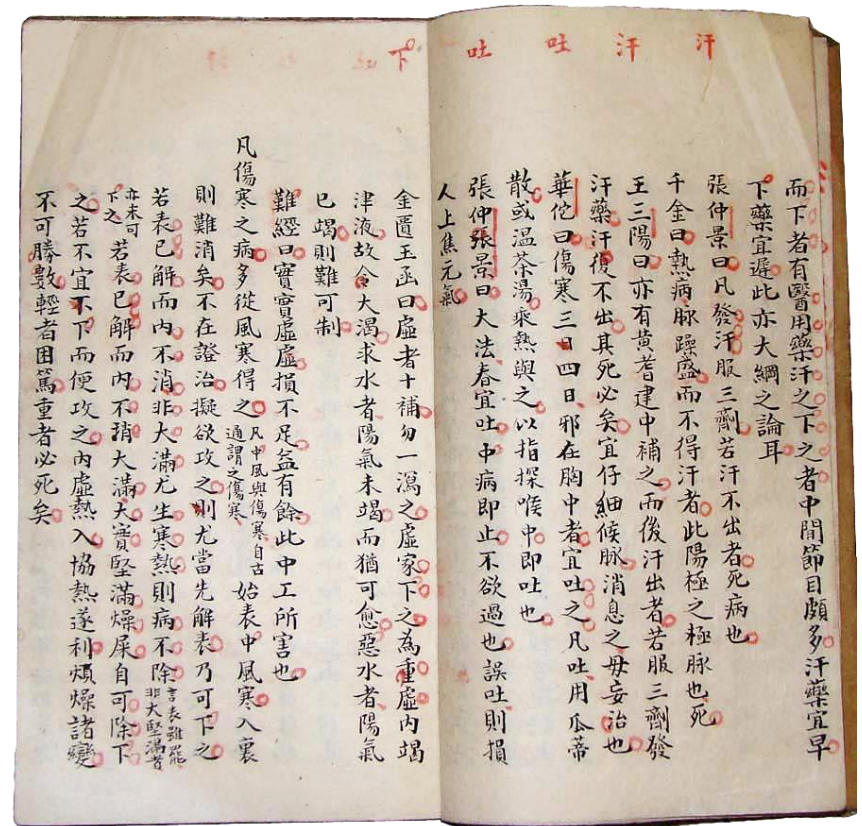 汗
汗
吐
吐
下
而下者有醫用藥汗之下之者中間節目頗多汗藥宜早
下藥宜遲此亦大綱之論耳
張仲景曰凡發汗服三劑若汗不出者死病也
千金曰熱病脉躁盛而不得汗者此陽極之極脉也死
王三陽曰亦有黄耆建中補之而後汗出者若服三劑發
汗藥汗復不出其死必矣宜仔細候脉消息之毋妄治也
華佗曰傷寒三日四日邪在胸中者宜吐之凡吐用瓜蒂
散或温茶湯乘熱與之以指探喉中即吐也
張仲張景曰大法春宜吐中病即止不欲過也誤吐則損
人上焦元氣
金匱玉函曰虛者十補勿一瀉之虛家下之為重虛内竭
津液故令大渴求水者陽氣未竭而猶可愈惡水者陽氣
已竭則難可制
難經曰實實虛虛損不足益有餘此中工所害也
凡傷寒之病多從風寒得之凡中風與傷寒自古通謂之傷寒始表中風寒入裏
則難消矣不在證治擬欲攻之則尤當先解表乃可下之
若表已解而内不消非大滿尤生寒熱則病不除言表雖罷非大堅滿者
亦未可下之若表已解而内不消大滿大實堅滿燥屎自可除下
之若不宜下而便攻之内虛熱入協熱遂利煩燥諸變
不可勝數輕者困篤重者必死矣